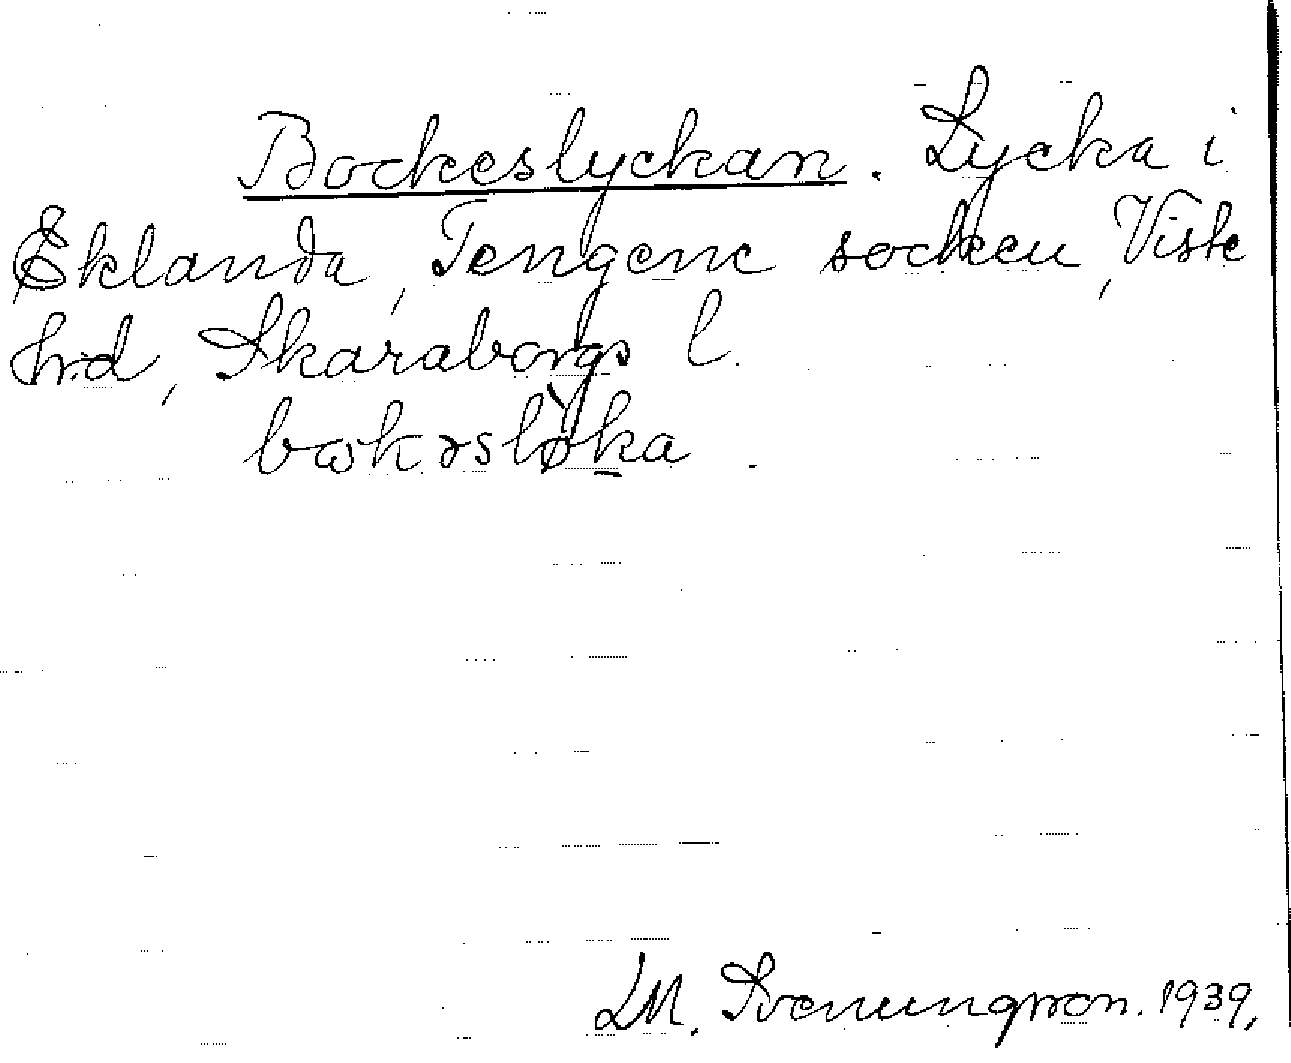 Bockeslyckan. Lycka i
Eklanda, Tengene socken, Viste
hrd, Skaraborgs l.
bωkəslø̀ka
LM. Svenungsson. 1939.